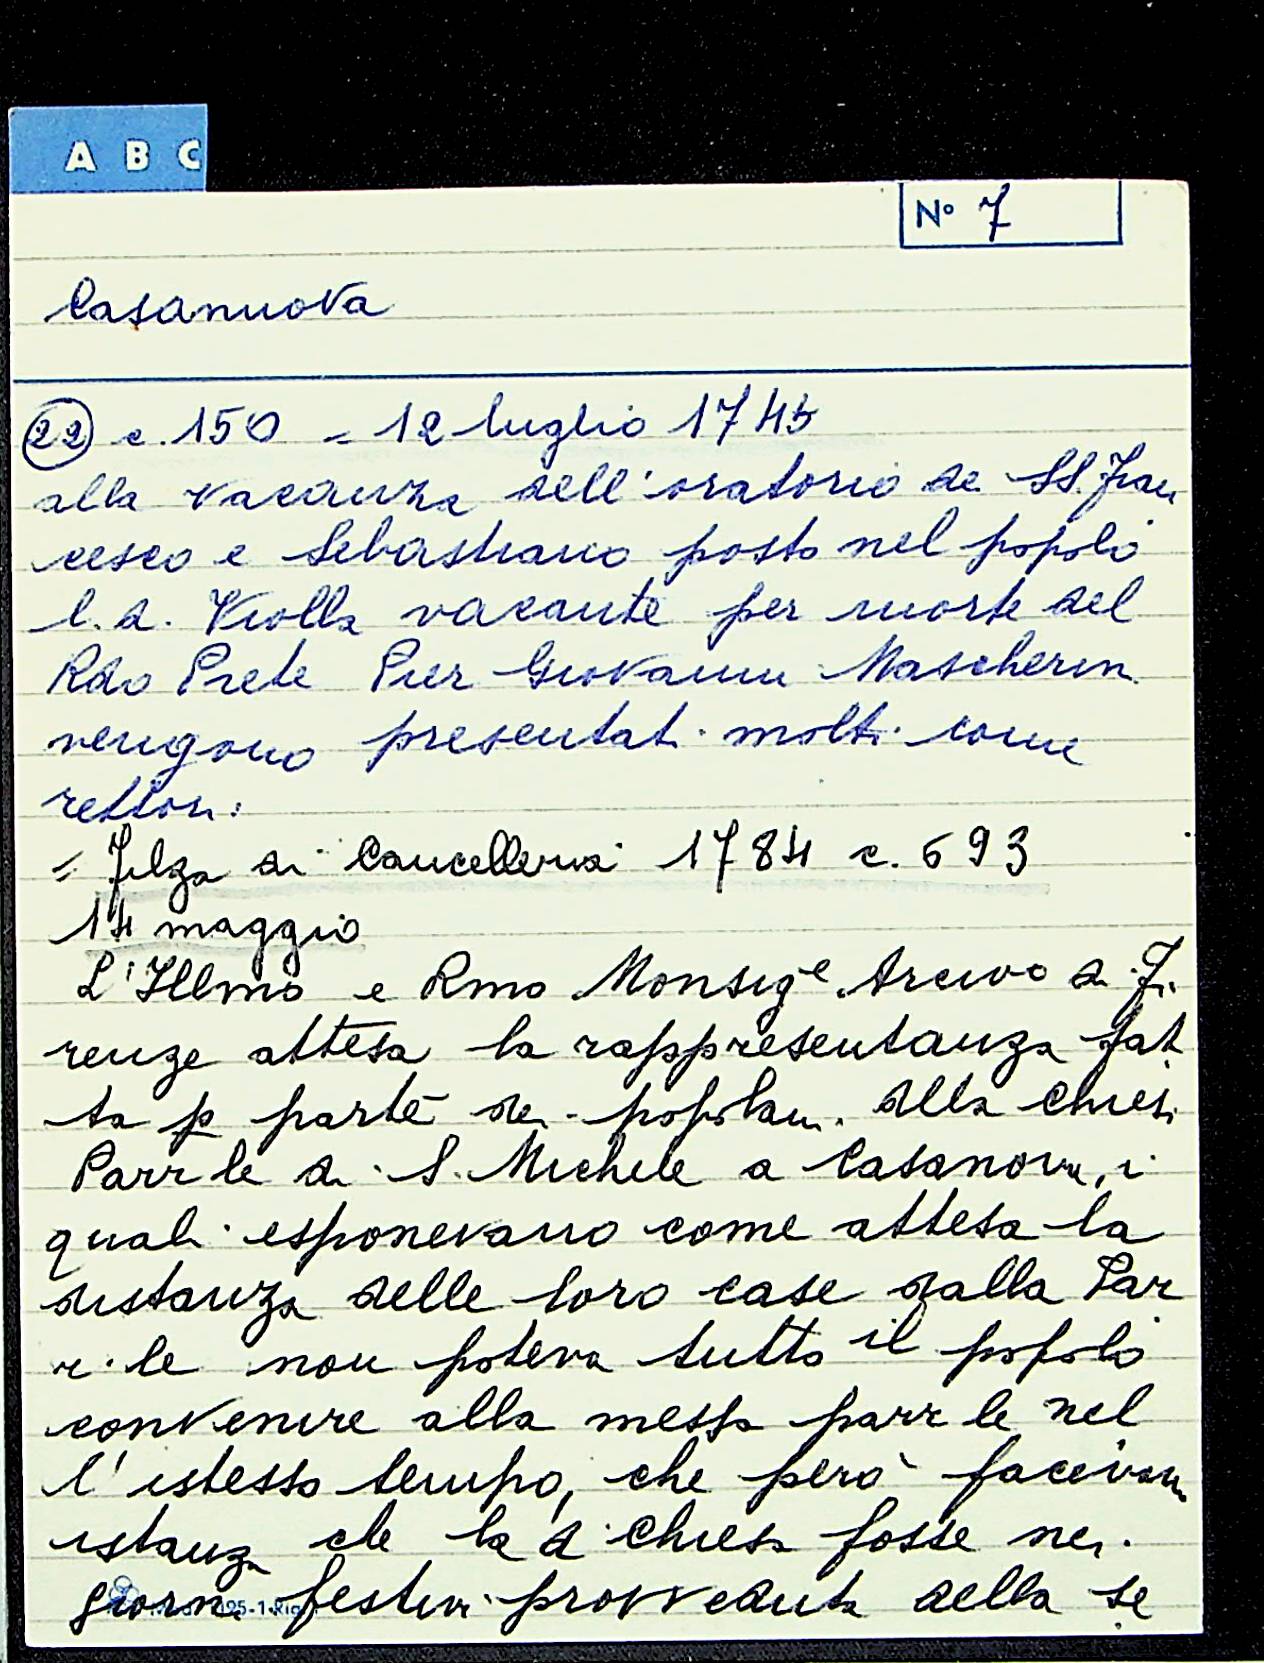 A B C
N° 7
Casanuova
22 c. 150 = 12 luglio 1745
alla vacanza dell'oratorio de SS. Fran
cesco e Sebastiano posto nel popolo
l.d. Violla vacante per morte del
Rdo Prete Pier Giovanni Mascherin
vengono presentati molti come
rettori:
= Filza di Cancelleria 1784 c. 693
14 maggio
L'Illmo e Rmo Monsige Arcivo di Fi
renze attesa la rappresentanza fat
ta p parte dei popolani della chiesa
Parrle di S. Michele a Casanova, i
quali esponevano come attesa la
distanza delle loro case dalla Par
r.le non poteva tutto il popolo
convenire alla messa parrle nel
l'istesso tempo, che però facevan
istanza che la d chiesa fosse nei
giorni festivi provveduta della se